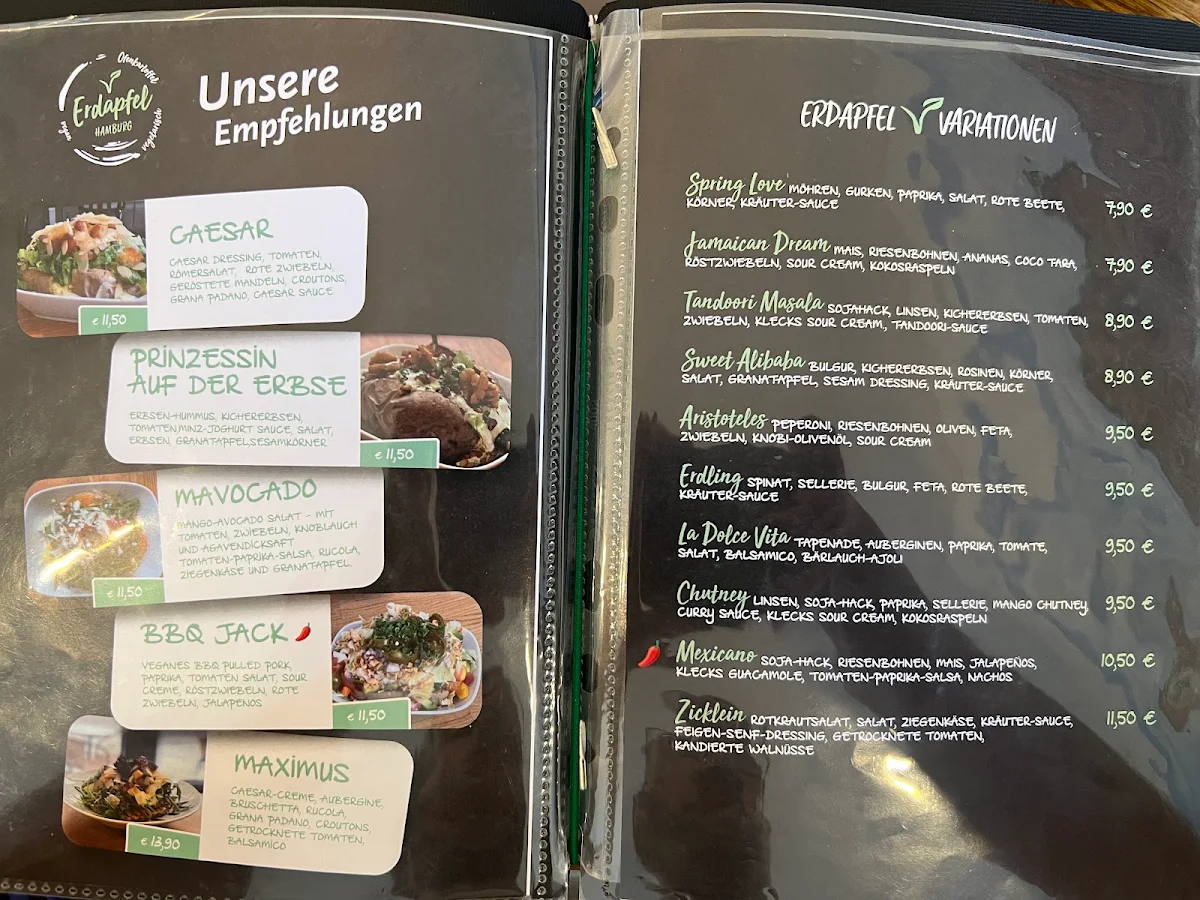 Ofenkartoffel
Erdapfel
HAMBURG
vegan
vegetarisch
Unsere
Empfehlungen
CAESAR
CAESAR DRESSING, TOMATEN,
RÖMERSALAT, ROTE ZWIEBELN,
GERÖSTETE MANDELN, CROUTONS,
GRANA PADANO, CAESAR SAUCE
€ 11,50
PRINZESSIN
AUF DER ERBSE
ERBSEN-HUMMUS, KICHERERBSEN,
TOMATEN,MINZ-JOGHURT SAUCE, SALAT,
ERBSEN, GRANATAPFEL,SESAMKÖRNER
€ 11,50
MAVOCADO
MANGO-AVOCADO SALAT - MIT
TOMATEN, ZWIEBELN, KNOBLAUCH
UND AGAVENDICKSAFT
TOMATEN-PAPRIKA-SALSA, RUCOLA,
ZIEGENKÄSE UND GRANATAPFEL.
€ 11,50
BBQ JACK
VEGANES BBQ PULLED PORK,
PAPRIKA, TOMATEN SALAT, SOUR
CREME, RÖSTZWIEBELN, ROTE
ZWIEBELN, JALAPENOS
€ 11,50
MAXIMUS
CAESAR-CREME, AUBERGINE,
BRUSCHETTA, RUCOLA,
GRANA PADANO, CROUTONS,
GETROCKNETE TOMATEN,
BALSAMICO
€ 13,90
ERDAPFEL VARIATIONEN
Spring Love MÖHREN, GURKEN, PAPRIKA, SALAT, ROTE BEETE,
KÖRNER, KRÄUTER-SAUCE 7,90 €
Jamaican Dream MAIS, RIESENBOHNEN, ANANAS, COCO FARA,
RÖSTZWIEBELN, SOUR CREAM, KOKOSRASPELN 7,90 €
Tandoori Masala SOJAHACK, LINSEN, KICHERERBSEN, TOMATEN,
ZWIEBELN, KLECKS SOUR CREAM, TANDOORI-SAUCE 8,90 €
Sweet Alibaba BULGUR, KICHERERBSEN, ROSINEN, KÖRNER,
SALAT, GRANATAPFEL, SESAM DRESSING, KRÄUTER-SAUCE 8,90 €
Aristoteles PEPERONI, RIESENBOHNEN, OLIVEN, FETA,
ZWIEBELN, KNOBI-OLIVENÖL, SOUR CREAM 9,50 €
Erdling SPINAT, SELLERIE, BULGUR, FETA, ROTE BEETE,
KRÄUTER-SAUCE 9,50 €
La Dolce Vita TAPENADE, AUBERGINEN, PAPRIKA, TOMATE,
SALAT, BALSAMICO, BÄRLAUCH-AJOLI 9,50 €
Chutney LINSEN, SOJA-HACK, PAPRIKA, SELLERIE, MANGO CHUTNEY,
CURRY SAUCE, KLECKS SOUR CREAM, KOKOSRASPELN 9,50 €
Mexicano SOJA-HACK, RIESENBOHNEN, MAIS, JALAPEÑOS,
KLECKS GUACAMOLE, TOMATEN-PAPRIKA-SALSA, NACHOS 10,50 €
Zicklein ROTKRAUTSALAT, SALAT, ZIEGENKÄSE, KRÄUTER-SAUCE,
FEIGEN-SENF-DRESSING, GETROCKNETE TOMATEN,
KANDIERTE WALNÜSSE 11,50 €